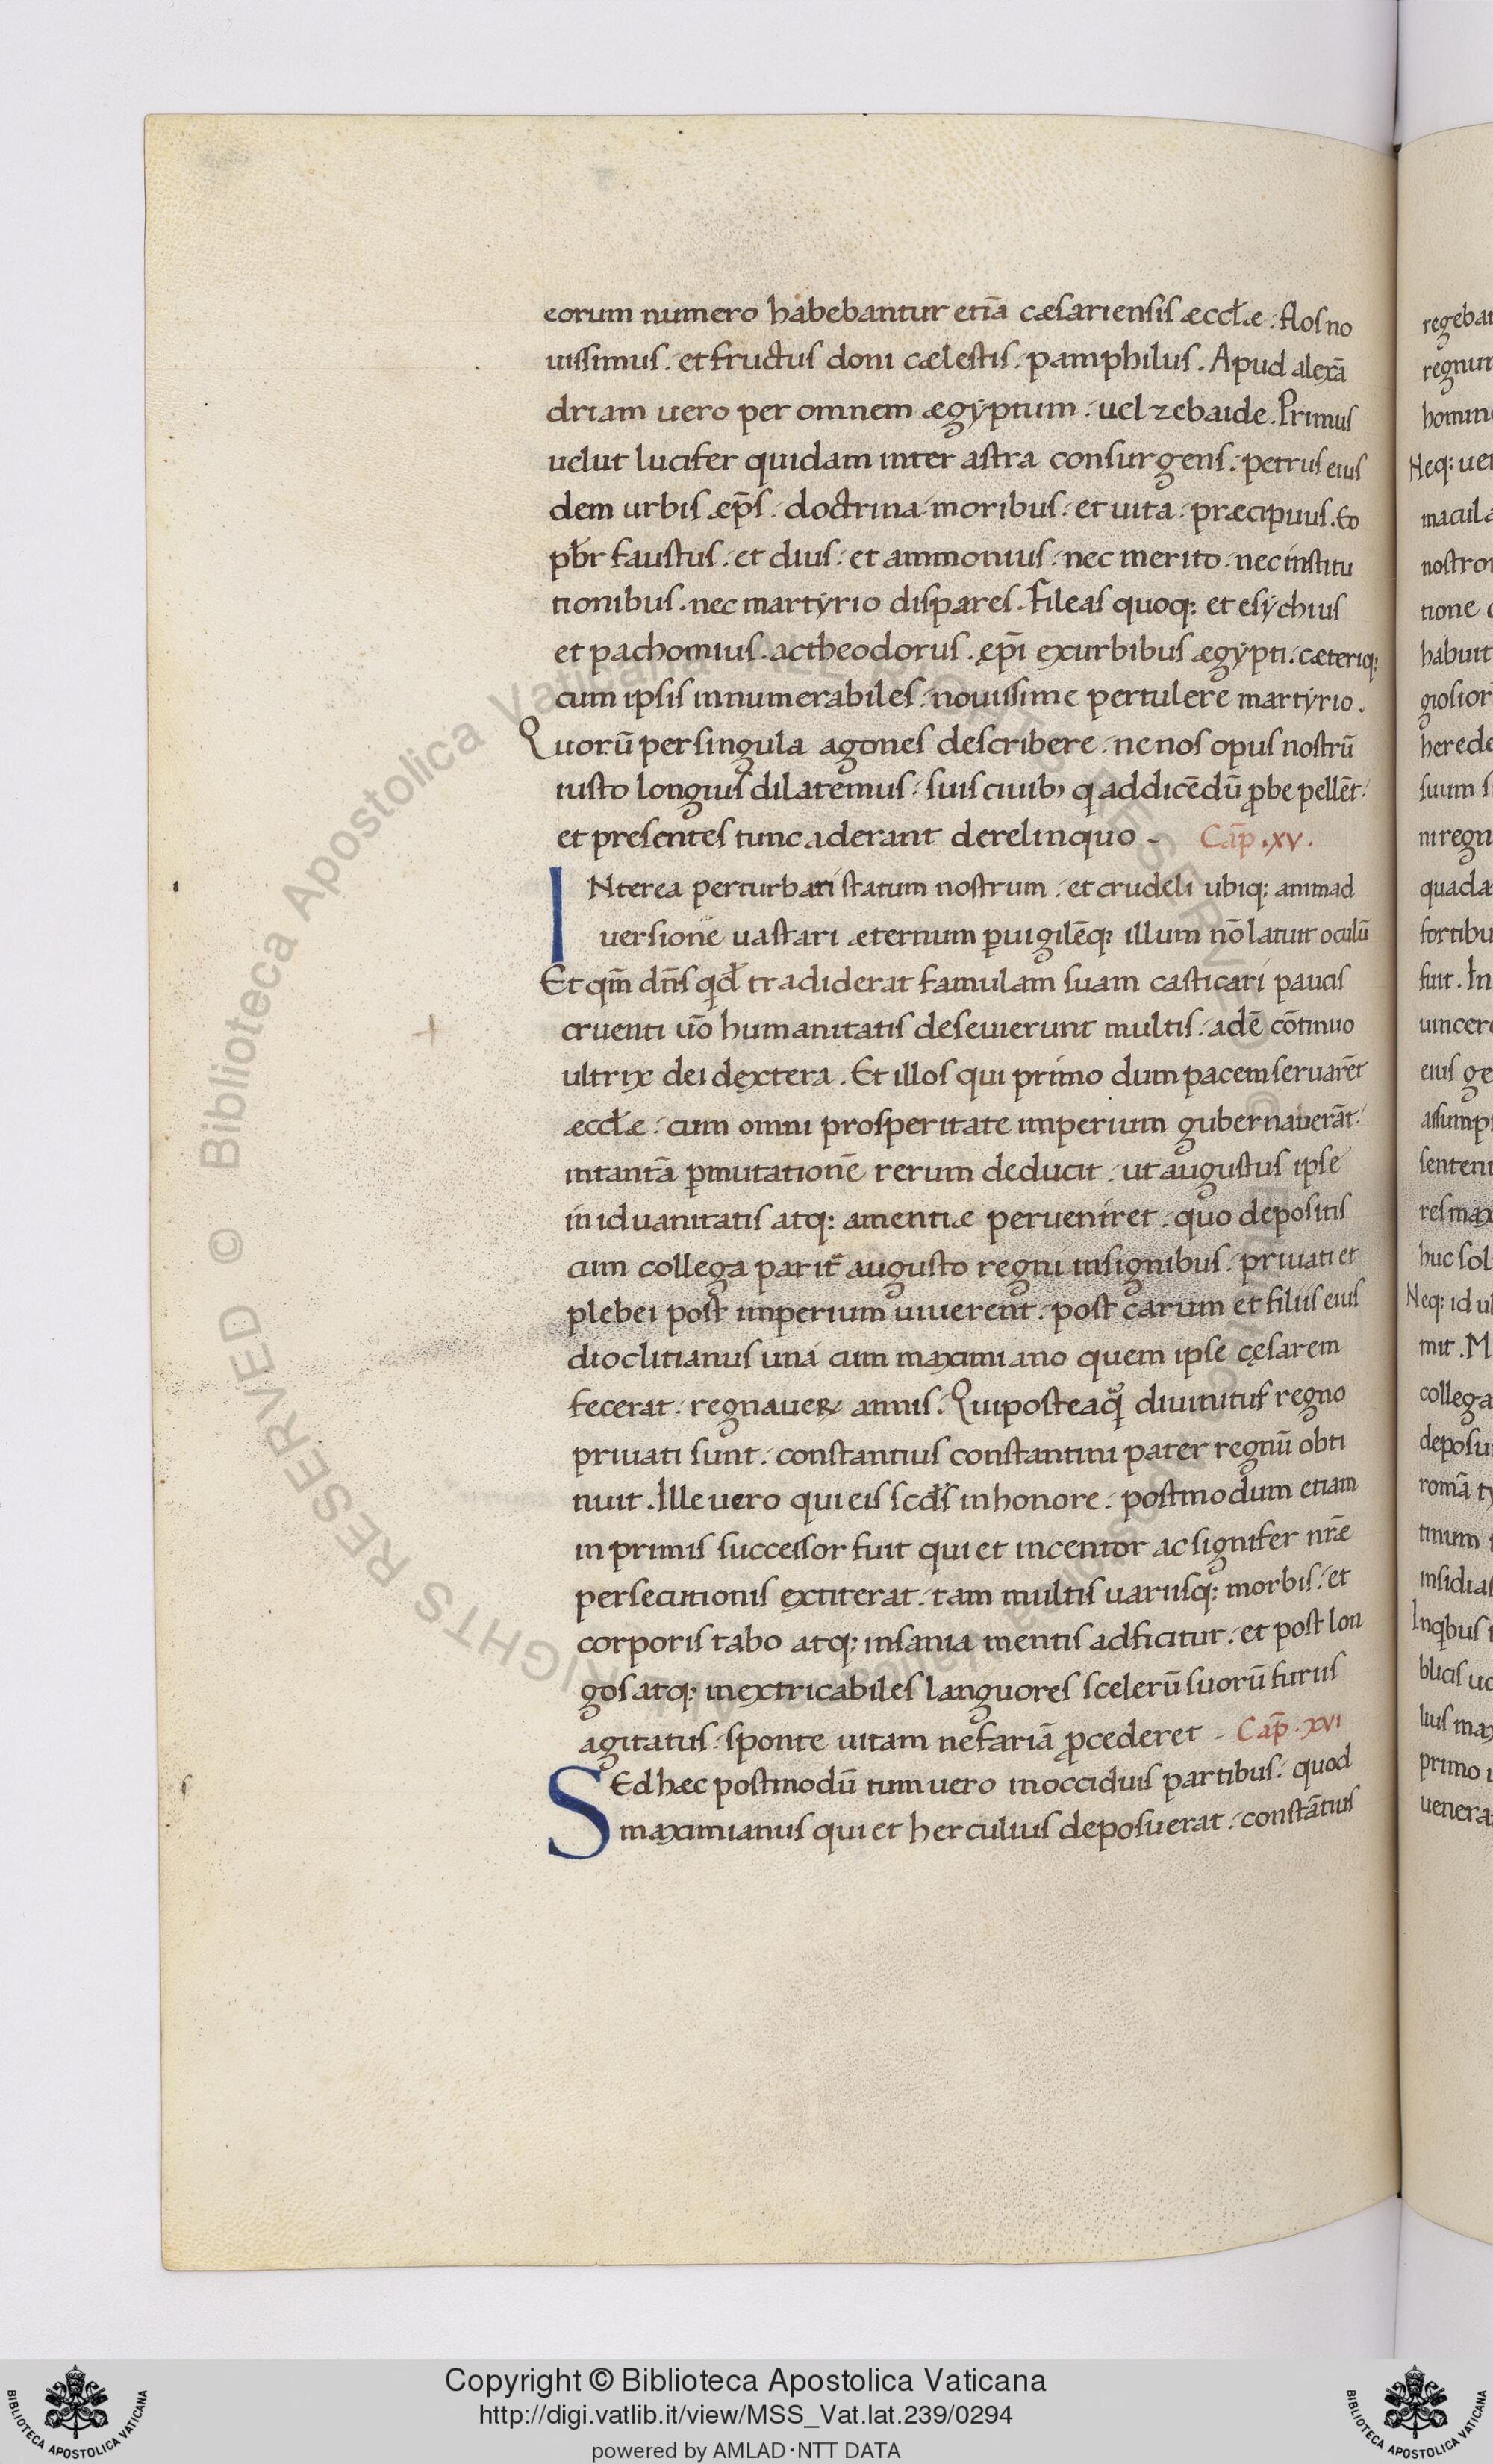 eorum numero habebantur etiā cæsariensis æccl̄æ. flos no
uissimus. et fructus doni cælestis. pamphilus. Apud alexā
driam uero per omnem ægyptum. uel zebaide. Primus
uelut lucifer quidam inter astra consurgens. petrus eius
dem urbis æp̄s. doctrina. moribus. et uita. præcipuus. Eo
pb̄r faustus. et dius. et ammonius. nec merito. nec institu
tionibus. nec martyrio dispares. Fileas quoq; et esychius
et pachomius. ac theodorus. æp̄i ex urbibus ægypti. cæteriq;
cum ipsis innumerabiles. nouissime pertulere martyrio.
Quorū per singula agones describere. ne nos opus nostrū
iusto longius dilatemus. suis ciuib; q addicēdū ꝓbe pellēt.
et presentes tunc aderant derelinquo – Cap̄. xv.
INterea perturbari statum nostrum. et crudeli ubiq; animad
uersione uastari æternum ꝑuigilēq; illum nō latuit oculū
Et qm̄ dn̄s qd̄ tradiderat famulam suam casticari paucis
cruenti ūo humanitatis deseuierunt multis. adē cōtinuo
ultrix dei dextera. Et illos qui primo dum pacem seruarēt
æccl̄æ. cum omni prosperitate imperium gubernauerāt.
in tantā ꝑmutationē rerum deducit. ut augustus ipse
in id uanitatis atq; amentiæ perueniret. quo depositis
cum collega parit̄ augusto regni insignibus. priuati et
plebei post imperium uiuerent. post carum et filiis eius
dioclitianus una cum maximiano quem ipse cęsarem
fecerat. regnaueꝝ annis. Qui posteaq̄ diuinitus regno
priuati sunt. constantius constantini pater regnū obti
nuit. Ille uero qui eis scd̄s in honore. postmodum etiam
in primis successor fuit qui et incentor ac signifer nr̄æ
persecutionis extiterat. tam multis uariisq; morbis. et
corporis tabo atq; insania mentis adficitur. et post lon
gos atq; inextricabiles languores scelerū suorū furiis
agitatus. sponte uitam nefariā ꝓcederet – Cap̄. xvi
SEd hæc postmodū tum uero in occiduis partibus. quod
maximianus qui et herculius deposuerat. constātius
regeba
regnum
homin
Neq; ue
macula
nostro
tione
habuit
giosior
herede
suum s
ni regn
quada
fortibu
fuit. In
uincer
eius ge
assump
senten
res max
huc sol
Neq; id u
mit. M
collega
deposu
romā ty
tinum
insidias
In qbus
blicis uo
lius max
primo
uenera
Copyright © Biblioteca Apostolica Vaticana
http://digi.vatlib.it/view/MSS_Vat.lat.239/0294
powered by AMLAD·NTT DATA
BIBLIOTECA APOSTOLICA VATICANA
BIBLIOTECA APOSTOLICA VATICANA
© Biblioteca Apostolica Vaticana ALL RIGHTS RESERVED